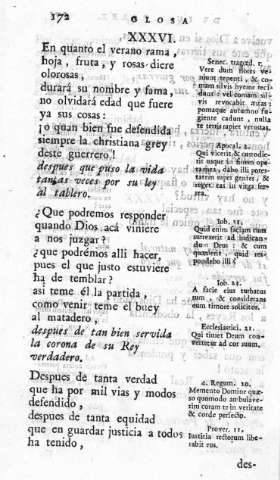 172 GLOSA
XXXVI.
En quanto el verano rama,
hoja, fruta, y rosas diere
olorosas,
durará su nombre y fama,
no olvidará edad que fuere
ya sus cosas:
¡o quan bien fue defendida
siempre la christiana grey
deste guerrero!
despues que puso la vida
tantas veces por su ley
al tablero.
¿Que podremos responder
quando Dios acá viniere
a nos juzgar?
¿que podrémos allí hacer,
pues el que justo estuviere
ha de temblar?
asi teme él la partida,
como venir teme el buey
al matadero,
despues de tan bien servida
la corona de su Rey
verdadero.
Despues de tanta verdad
que ha por mil vias y modos
defendido,
despues de tanta equidad
que en guardar justicia a todos
ha tenido,
Senec. tragœd. 1.
Vere dum flores venient
Apocal. 2.
Qui vicerit & custodierit
Job. 31.
Quid enim faciam cum
surrexerit ad judicandum
quæsierit, quid respondebo
illi?
A facie ejus turbatus
sum, & considerans
eum timore sollicitor.
Ecclesiastici. 21.
Qui timet Deum convertetur
ad cor suum.
4. Regum. 20.
Memento Domine quæso
quomodo ambulaverim
coram te in veritate
& corde perfecto.
Prover. 11.
Justicia rectorum liberabit
eos.
des-